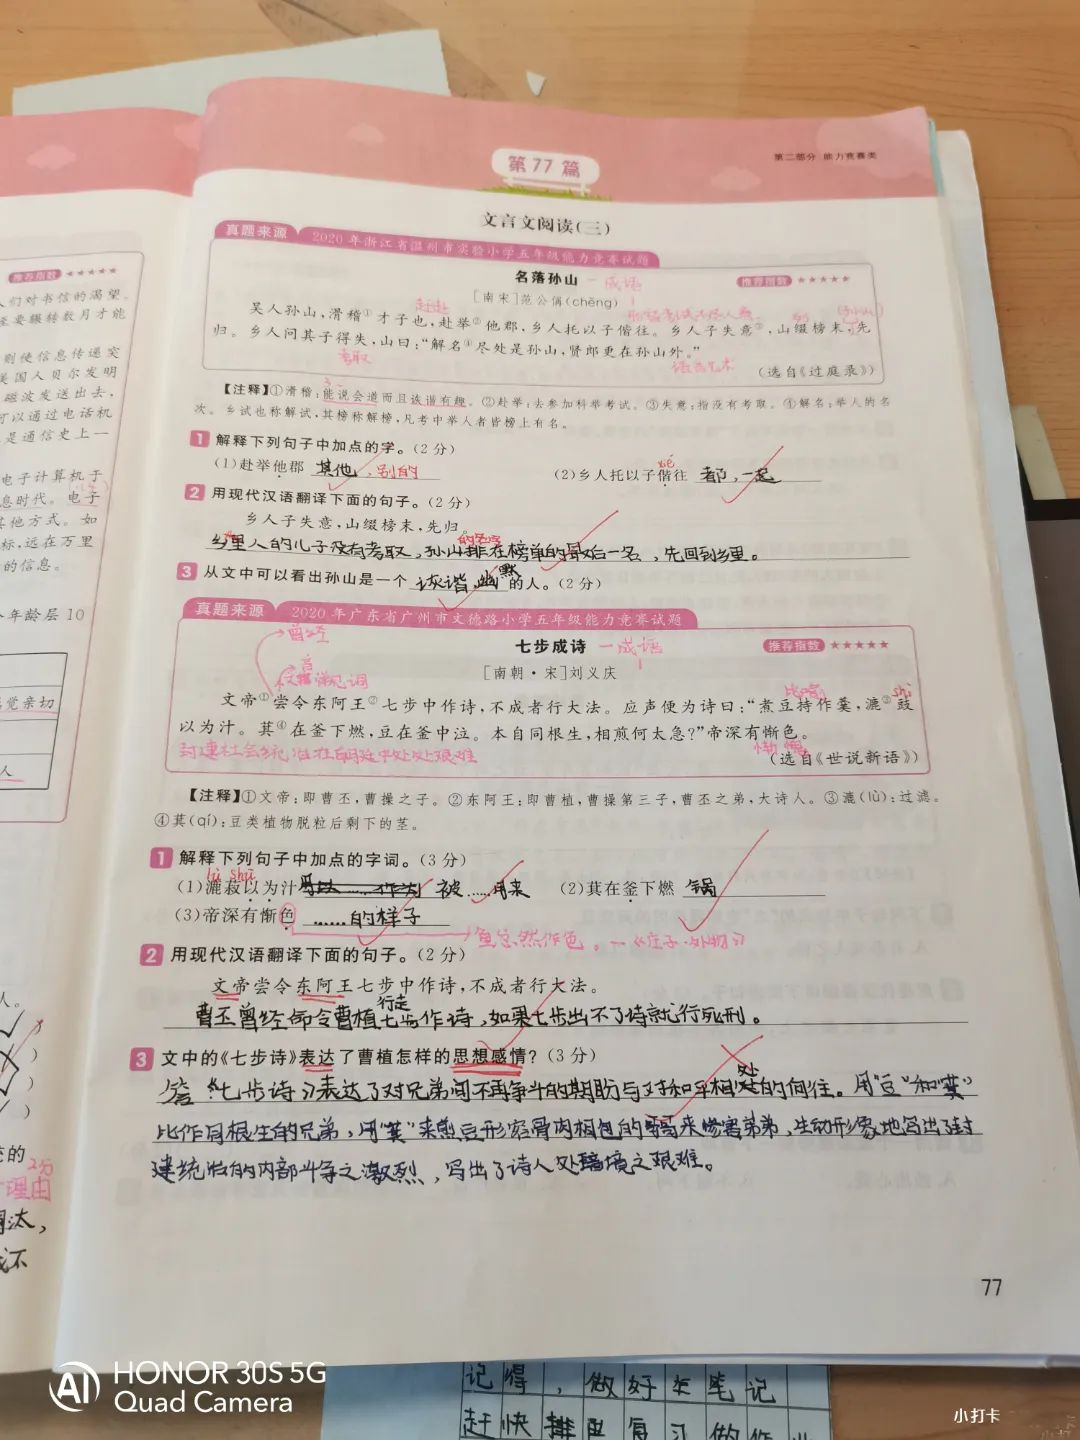 第二部分 能力竞赛类
第77篇
文言文阅读(三)
真题来源 2020年浙江省温州市实验小学五年级能力竞赛试题
名落孙山 一成语
推荐指数 ★★★★★
[南宋]范公偁(chēng)
吴人孙山,滑稽①才子也,赴举②他郡,乡人托以子偕往。乡人子失意③,山缀榜末,先
归。乡人问其子得失,山曰:“解名④尽处是孙山,贤郎更在孙山外。”
考取
语言艺术
(选自《过庭录》)
【注释】①滑稽:能说会道而且诙谐有趣。②赴举:去参加科举考试。③失意:指没有考取。④解名:举人的名
次。乡试也称解试,其榜称解榜,凡考中举人者皆榜上有名。
1 解释下列句子中加点的字。(2分)
(1)赴举他郡 其他,别的
xié
(2)乡人托以子偕往 都,一起
2 用现代汉语翻译下面的句子。(2分)
乡人子失意,山缀榜末,先归。
的名字
乡里人的儿子没有考取,孙山排在榜单的最后一名,先回到乡里。
3 从文中可以看出孙山是一个 诙谐幽默 的人。(2分)
真题来源 2020年广东省广州市文德路小学五年级能力竞赛试题
曾经
七步成诗 一成语
推荐指数 ★★★★★
[南朝·宋]刘义庆
shǐ
文帝①尝令东阿王②七步中作诗,不成者行大法。应声便为诗曰:“煮豆持作羹,漉③豉
以为汁。萁④在釜下燃,豆在釜中泣。本自同根生,相煎何太急?”帝深有惭色。
封建社会统治在朝廷中处处艰难
惭愧
(选自《世说新语》)
【注释】①文帝:即曹丕,曹操之子。②东阿王:即曹植,曹操第三子,曹丕之弟,大诗人。③漉(lù):过滤。
④萁(qí):豆类植物脱粒后剩下的茎。
1 解释下列句子中加点的字词。(3分)
(1)漉菽以为汁 被……用来
(2)萁在釜下燃 锅
(3)帝深有惭色 ……的样子
2 用现代汉语翻译下面的句子。(2分)
文帝尝令东阿王七步中作诗,不成者行大法。
行走
曹丕曾经命令曹植七步作诗,如果七步出不了诗就行死刑。
3 文中的《七步诗》表达了曹植怎样的思想感情?(3分)
答《七步诗》表达了对兄弟间不再争斗的期盼与对和平相处的向往。用“豆”和“萁”
比作同根生的兄弟,用“萁”来煎豆形容骨肉相包的哥哥来惨害弟弟,生动形象地写出了封
建统治的内部斗争之激烈,写出了诗人处暗境之艰难。
77
推荐指数 ★★★★★
们对书信的渴望。
至要辗转数月才能
则使信息传递突
美国人贝尔发明
磁波发送出去,
可以通过电话机
是通信史上一
电子计算机于
息时代。电子
其他方式。如
标,远在万里
的信息。
年龄层10
觉亲切
人
2分
理由
HONOR 30S 5G
Quad Camera
记得,做好本笔记
赶快排
小打卡